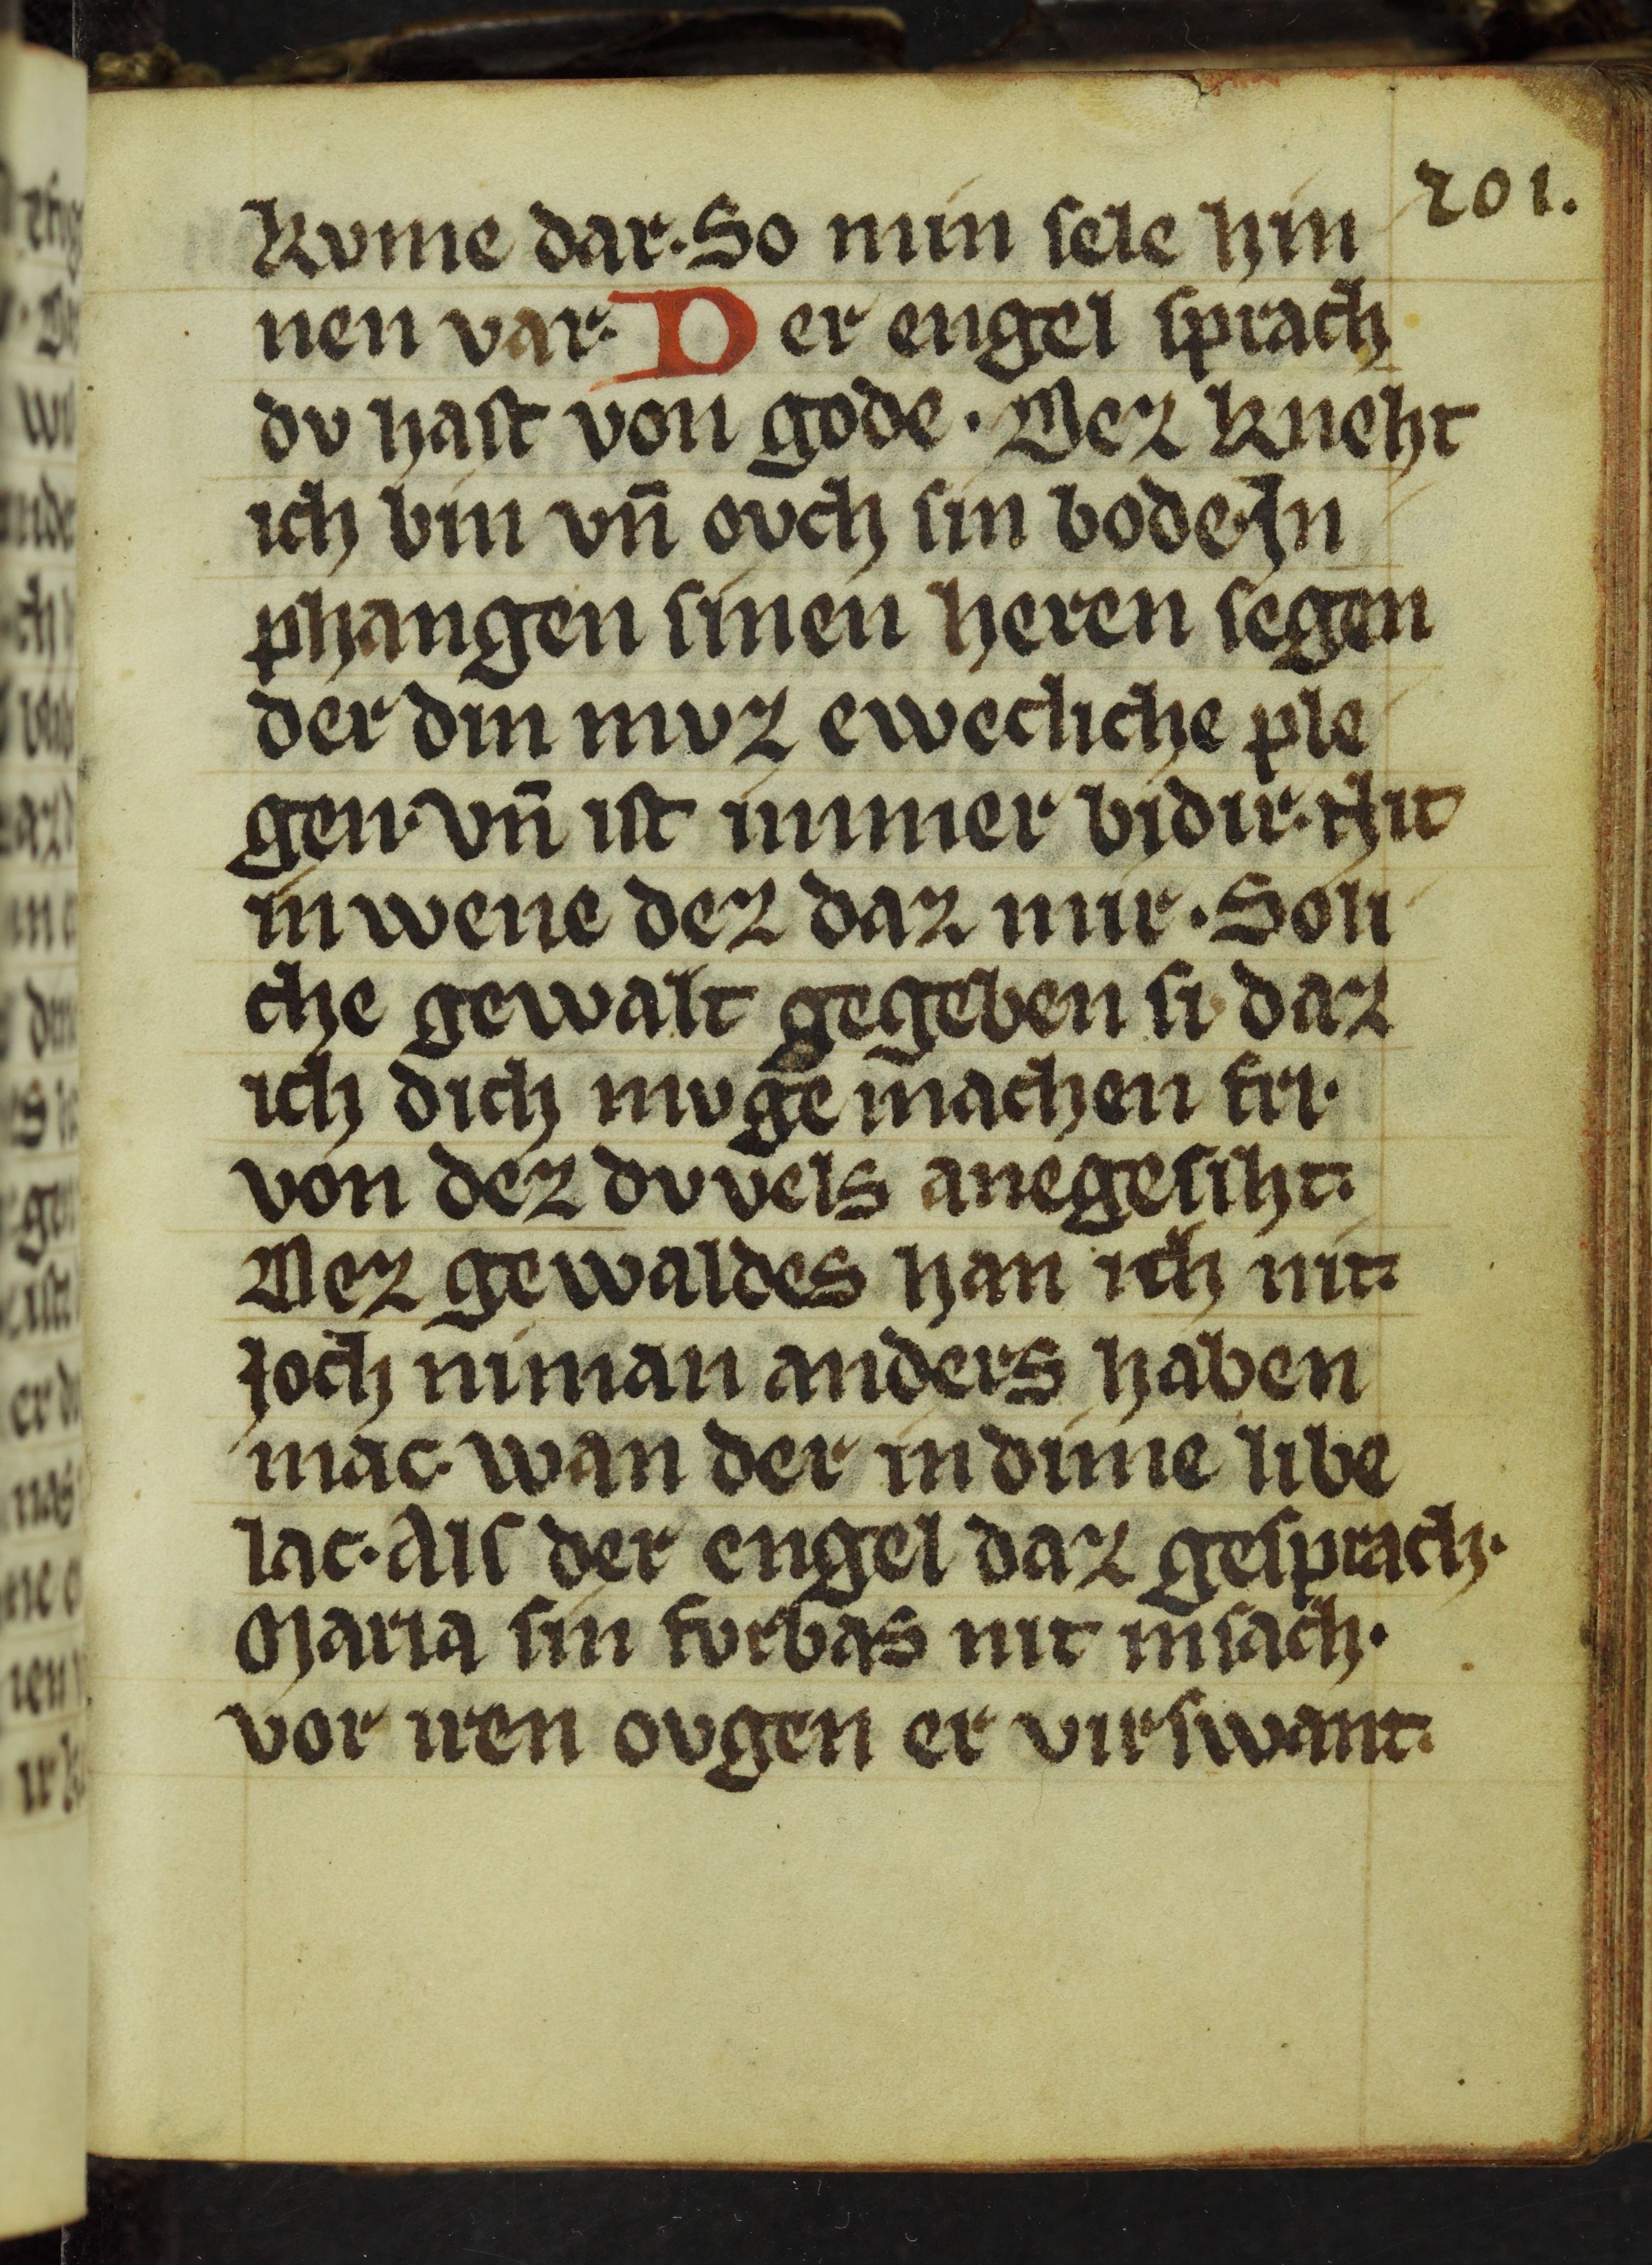 201.
kvme dar. So min sele hin
nen var. Der engel sprach
dv hast von gode. Dez kneht
ich bin vn̄ ovch sin bode. In
phangen sinen heren segen
der din mvz ewecliche ple
gen. vn̄ ist immer bi dir. nit
in wene dez daz mir. Soli
che gewalt gegeben si daz
ich dich mvge machen fri.
von dez dvvels anegesiht.
Dez gewaldes han ich nit.
joch niman anders haben
mac. wan der in dime libe
lac. Als der engel daz gesprach.
Maria sin fvrbas nit insach.
vor iren ovgen er virswant.